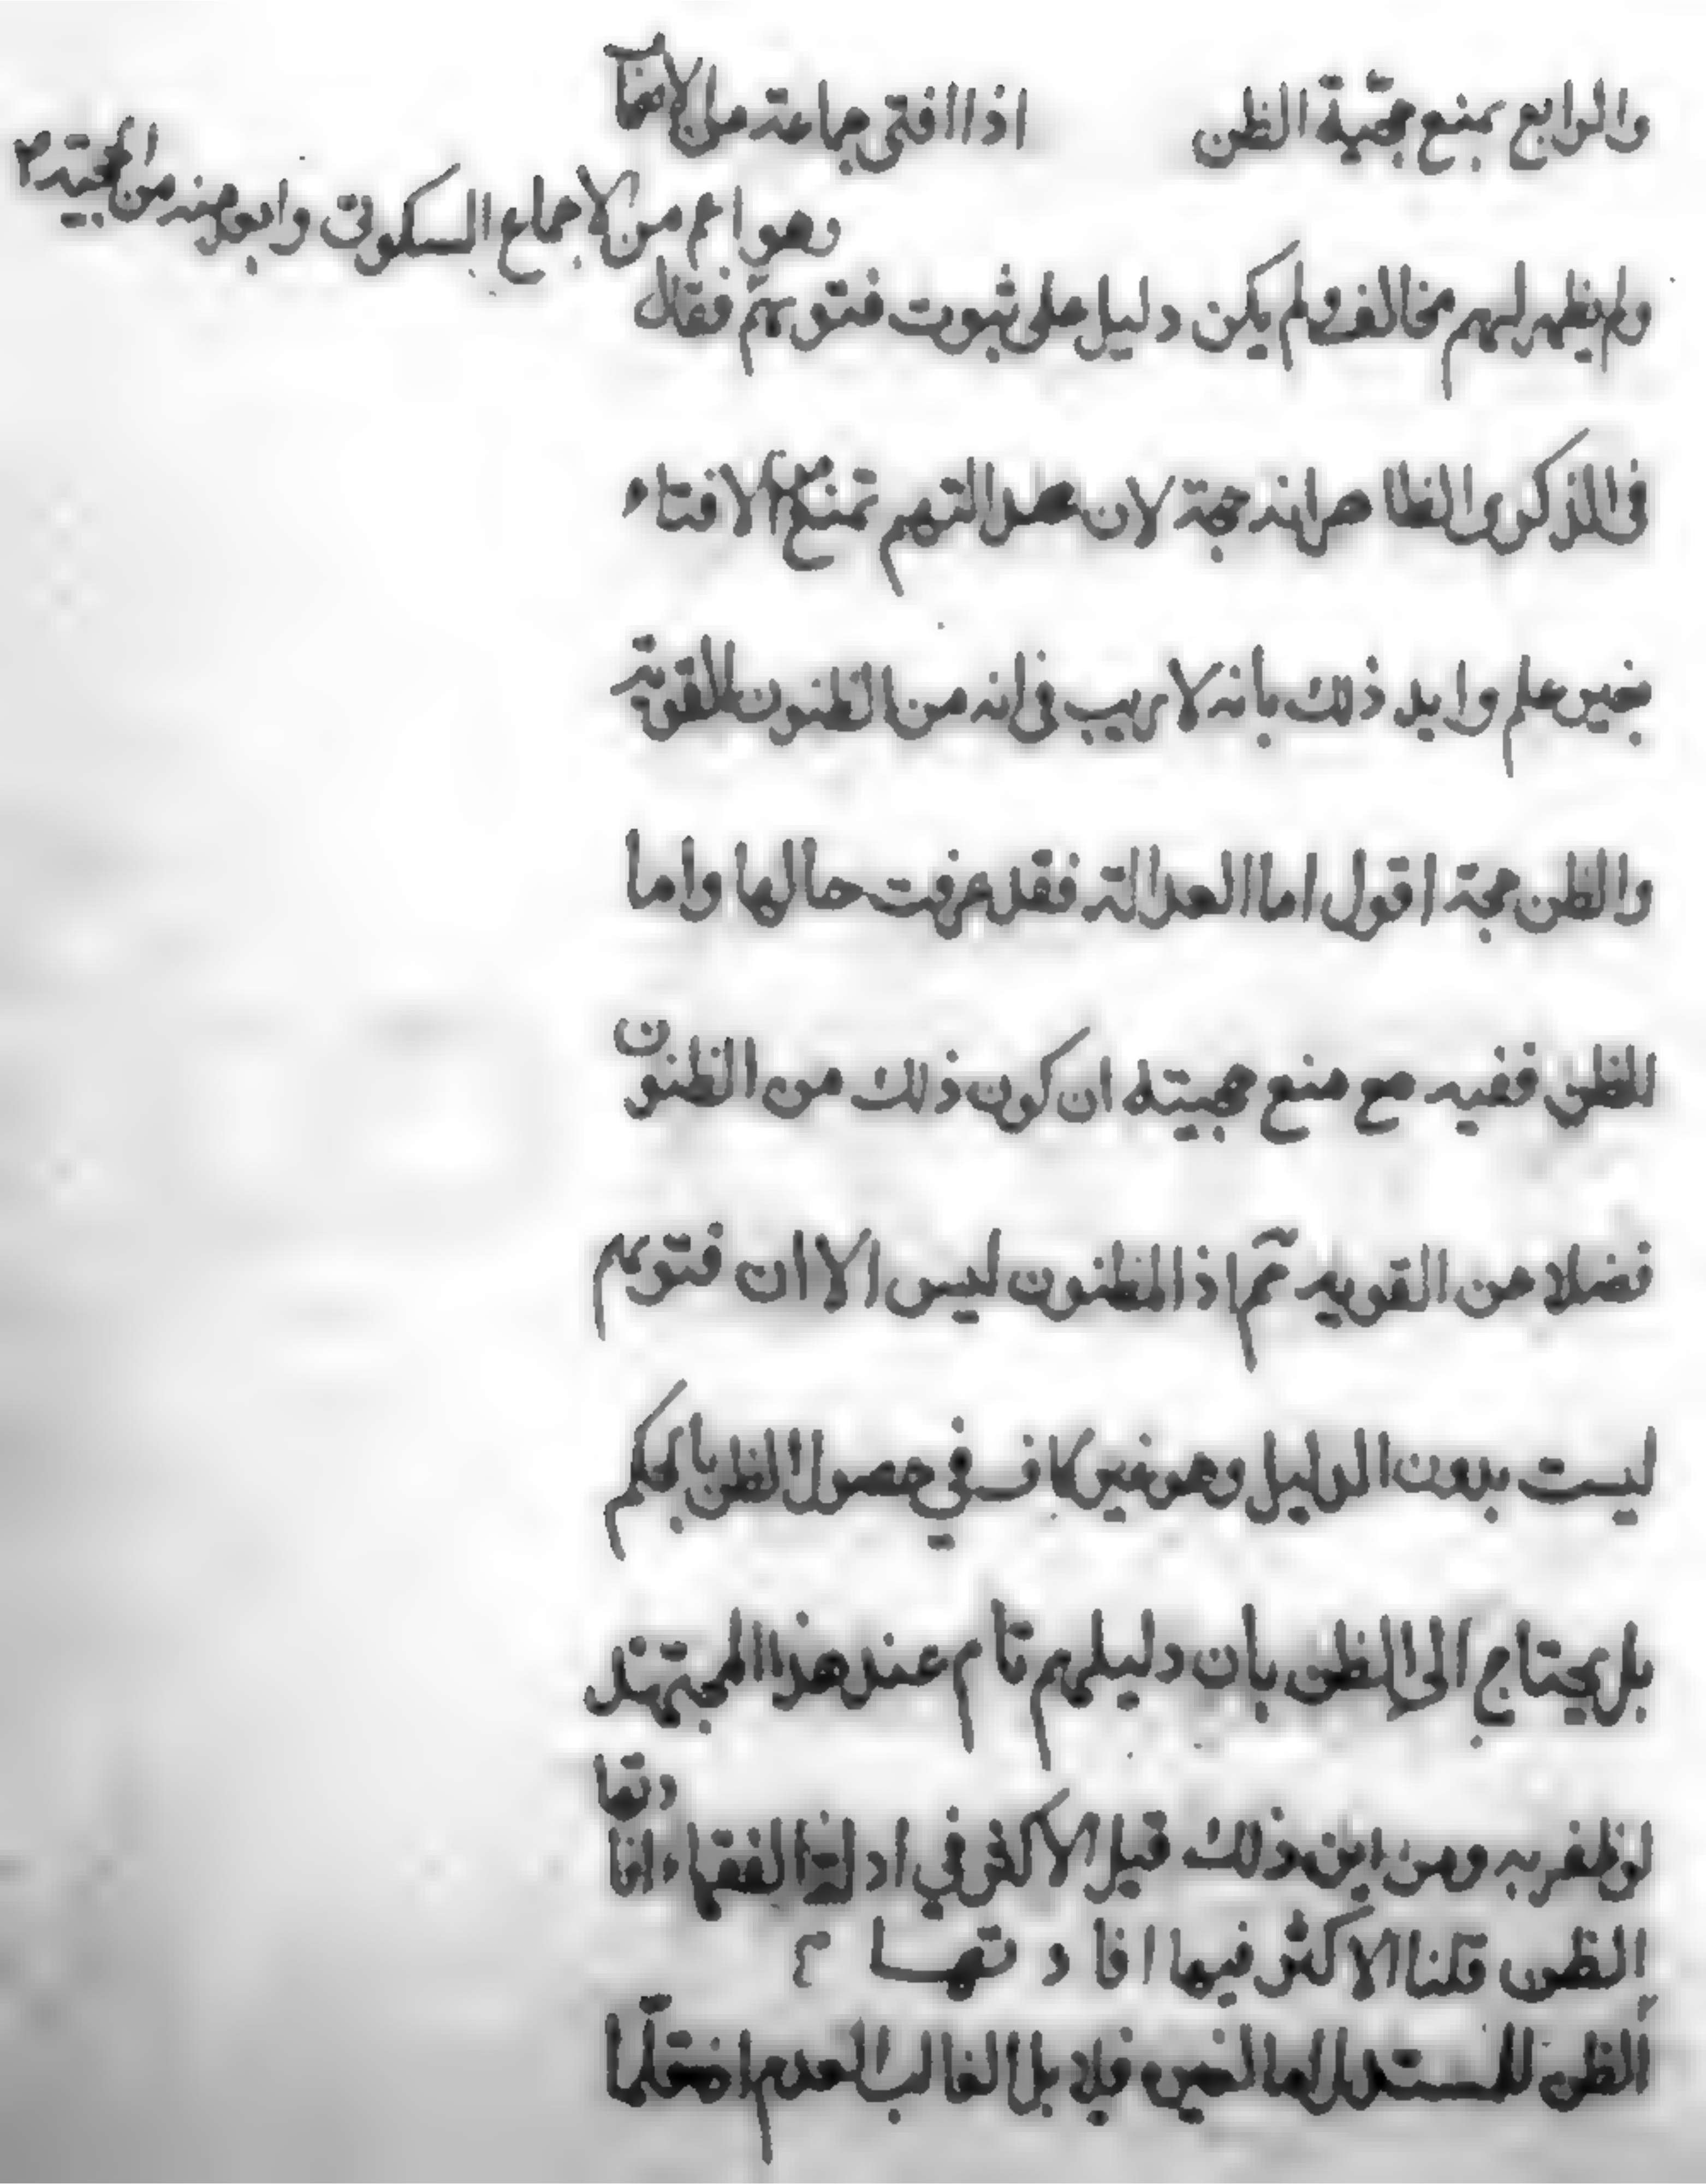 والرابع بمنع حجّية الظن اذا افتى جماعة من الاصحاب
وهو اعم من الاجماع السكوتى وابعد منه من المجتهد
ولم يظهر لهم مخالف ولم يكن دليل على ثبوت فتويهم فقال
فى الذكرى الظاهر انه حجة لان عدالتهم تمنع من الافتاء
بغير علم وايد ذلك بأنه لا ريب فى انه من الظنون القوية
والظن حجة اقول اما العدالة فقد عرفت حالها واما
الظن ففيه مع منع حجيته ان كون ذلك من الظنون
فضلا عن القويه ثم اذ المظنون ليس الا ان فتويهم
ليست بدون الدليل وهو غير كاف في حصول الظن بالحكم
بل يحتاج الى الظن بأن دليلهم تام عند هذا المجتهد
لو ظفر به ومن اين ذلك قيل الاكثر في ادلة الفقهاء افادتها
الظن قلنا الاكثر فيها افادتها
الظن للمستدل اما لغيره فلا بل الغالب العدم